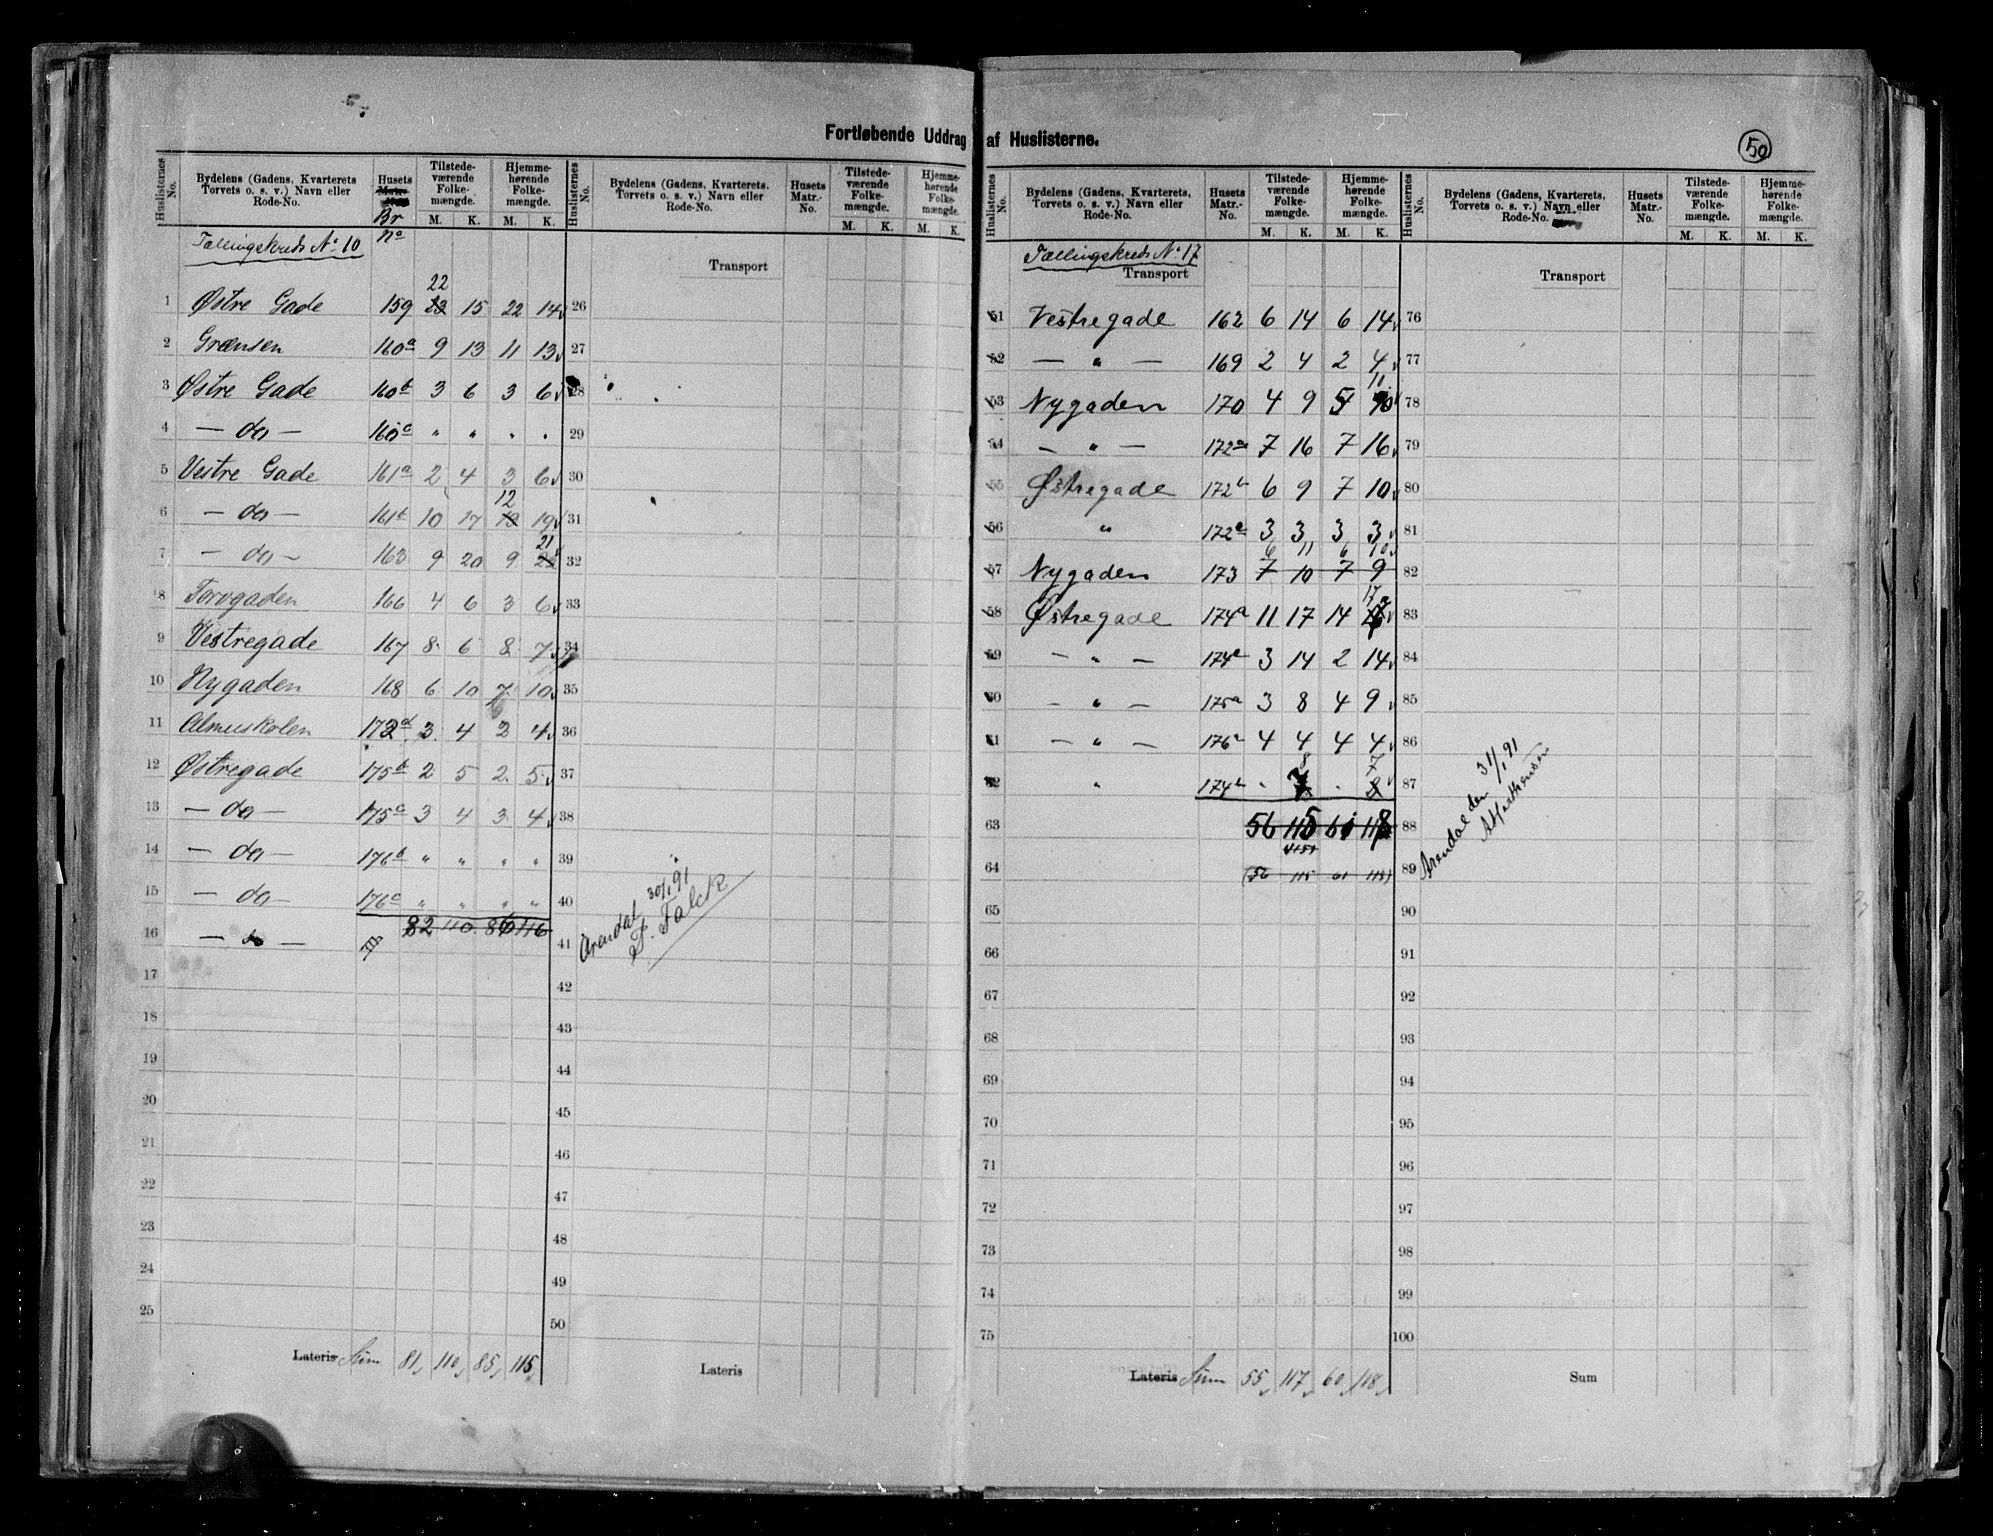 Fortløbende Uddrag af Huslisterne.
50
Huslisternes No. | Bydelens (Gadens, Kvarterets Torvets o. s. v.) Navn eller Rode-No. | Husets Br no | Tilstedeværende Folkemængde. M. K. | Hjemmehørende Folkemængde. M. K.
Tællingskreds No 10
1 Østre Gade 159 22 15 22 14
2 Grænsen 160a 9 13 11 13
3 Østre Gade 160b 3 6 3 6
4 — do — 160c " " " "
5 Vestre Gade 161a 2 4 3 6
6 — do — 161b 10 17 12 19
7 — do — 163 9 20 9 21
8 Torvgaden 166 4 6 3 6
9 Vestregade 167 8 6 8 7
10 Nygaden 168 6 10 7 10
11 Almuskolen 172d 3 4 2 4
12 Østregade 175b 2 5 2 5
13 — do — 175c 3 4 3 4
14 — do — 176b " " " "
15 — do — 176c " " " "
82 110 86 116
16 — do —
17
18
19
20
21
22
23
24
25
Lateris Sum 81, 110, 85, 115,
Huslisternes No. | Bydelens (Gadens, Kvarterets, Torvets o. s. v.) Navn eller Rode-No. | Husets Matr.-No. | Tilstedeværende Folkemængde. M. K. | Hjemmehørende Folkemængde. M. K.
Transport
26
27
28
29
30
31
32
33
34
35
36
37
38
39
40
41
Arendal 30/1 91
F. Falck
42
43
44
45
46
47
48
49
50
Lateris
Huslisternes No. | Bydelens (Gadens, Kvarterets, Torvets o. s. v.) Navn eller Rode-No. | Husets Matr.-No. | Tilstedeværende Folkemængde. M. K. | Hjemmehørende Folkemængde. M. K.
Tællingskreds No 17
Transport
51 Vestregade 162 6 14 6 14
52 — " — 169 2 4 2 4
53 Nygaden 170 4 9 5 10
54 — " — 172a 7 16 7 16
55 Østregade 172b 6 9 7 10
56 " 172c 3 3 3 3
6 11 6 10
57 Nygaden 173 7 10 7 9
58 Østregade 174a 11 17 14 17
59 — " — 174c 3 14 2 14
60 — " — 175a 3 8 4 9
61 — " — 176a 4 4 4 4
62 " 174b . 8 . 7
63 56 115 61 118
64 (56 115 61 118)
65
66
67
68
69
70
71
72
73
74
75
Lateris Sum 55, 117, 60, 118,
Huslisternes No. | Bydelens (Gadens, Kvarterets, Torvets o. s. v.) Navn eller Rode-No. | Husets Matr.-No. | Tilstedeværende Folkemængde. M. K. | Hjemmehørende Folkemængde. M. K.
Transport
76
77
78
79
80
81
82
83
84
85
86
87
88
89
Arendal den 31/1 91
90
91
92
93
94
95
96
97
98
99
100
Sum